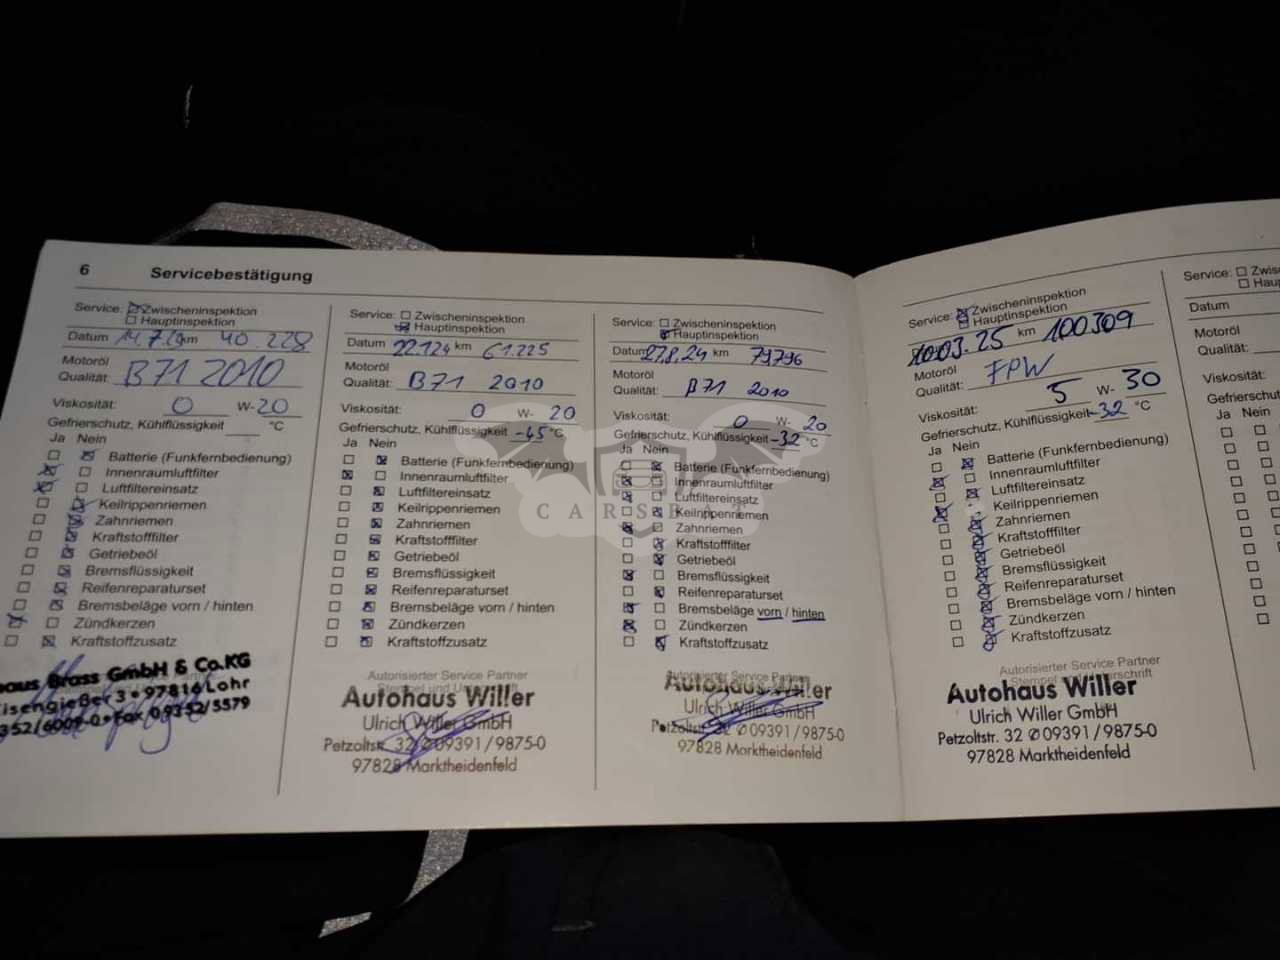 6 Servicebestätigung
Service: Zwischeninspektion
Hauptinspektion
Datum 14.7. km 40.228
Motoröl
Qualität: B71 2010
Viskosität: 0 W- 20
Gefrierschutz, Kühlflüssigkeit °C
Ja Nein
Batterie (Funkfernbedienung)
Innenraumluftfilter
Luftfiltereinsatz
Keilrippenriemen
Zahnriemen
Kraftstofffilter
Getriebeöl
Bremsflüssigkeit
Reifenreparaturset
Bremsbeläge vorn / hinten
Zündkerzen
Kraftstoffzusatz
Brass GmbH & Co.KG
3 • 97816 Lohr
352/6009-0 • Fax 09352/5579
Service: Zwischeninspektion
Hauptinspektion
Datum km 61.225
Motoröl
Qualität: B71 2010
Viskosität: 0 W- 20
Gefrierschutz, Kühlflüssigkeit -45 °C
Ja Nein
Batterie (Funkfernbedienung)
Innenraumluftfilter
Luftfiltereinsatz
Keilrippenriemen
Zahnriemen
Kraftstofffilter
Getriebeöl
Bremsflüssigkeit
Reifenreparaturset
Bremsbeläge vorn / hinten
Zündkerzen
Kraftstoffzusatz
Autorisierter Service Partner
Autohaus Willer
Ulrich Willer GmbH
Petzoltstr. 32 ✆ 09391/9875-0
97828 Marktheidenfeld
Service: Zwischeninspektion
Hauptinspektion
Datum 27.8.24 km 79796
Motoröl
Qualität: B71 2010
Viskosität: 0 W- 20
Gefrierschutz, Kühlflüssigkeit -32 °C
Ja Nein
Batterie (Funkfernbedienung)
Innenraumluftfilter
Luftfiltereinsatz
Keilrippenriemen
Zahnriemen
Kraftstofffilter
Getriebeöl
Bremsflüssigkeit
Reifenreparaturset
Bremsbeläge vorn / hinten
Zündkerzen
Kraftstoffzusatz
Autorisierter Service Partner
Autohaus Willer
Ulrich Willer GmbH
Petzoltstr. 32 ✆ 09391/9875-0
97828 Marktheidenfeld
CARSBAT
Service: Zwischeninspektion
Hauptinspektion
03.25 km 100309
Motoröl
Qualität: FPW
Viskosität: 5 W- 30
Gefrierschutz, Kühlflüssigkeit -32 °C
Ja Nein
Batterie (Funkfernbedienung)
Innenraumluftfilter
Luftfiltereinsatz
Keilrippenriemen
Zahnriemen
Kraftstofffilter
Getriebeöl
Bremsflüssigkeit
Reifenreparaturset
Bremsbeläge vorn / hinten
Zündkerzen
Kraftstoffzusatz
Autorisierter Service Partner
Autohaus Willer
Ulrich Willer GmbH
Petzoltstr. 32 ✆ 09391/9875-0
97828 Marktheidenfeld
Service:
Datum
Motoröl
Qualität:
Viskosität:
Ja Nein